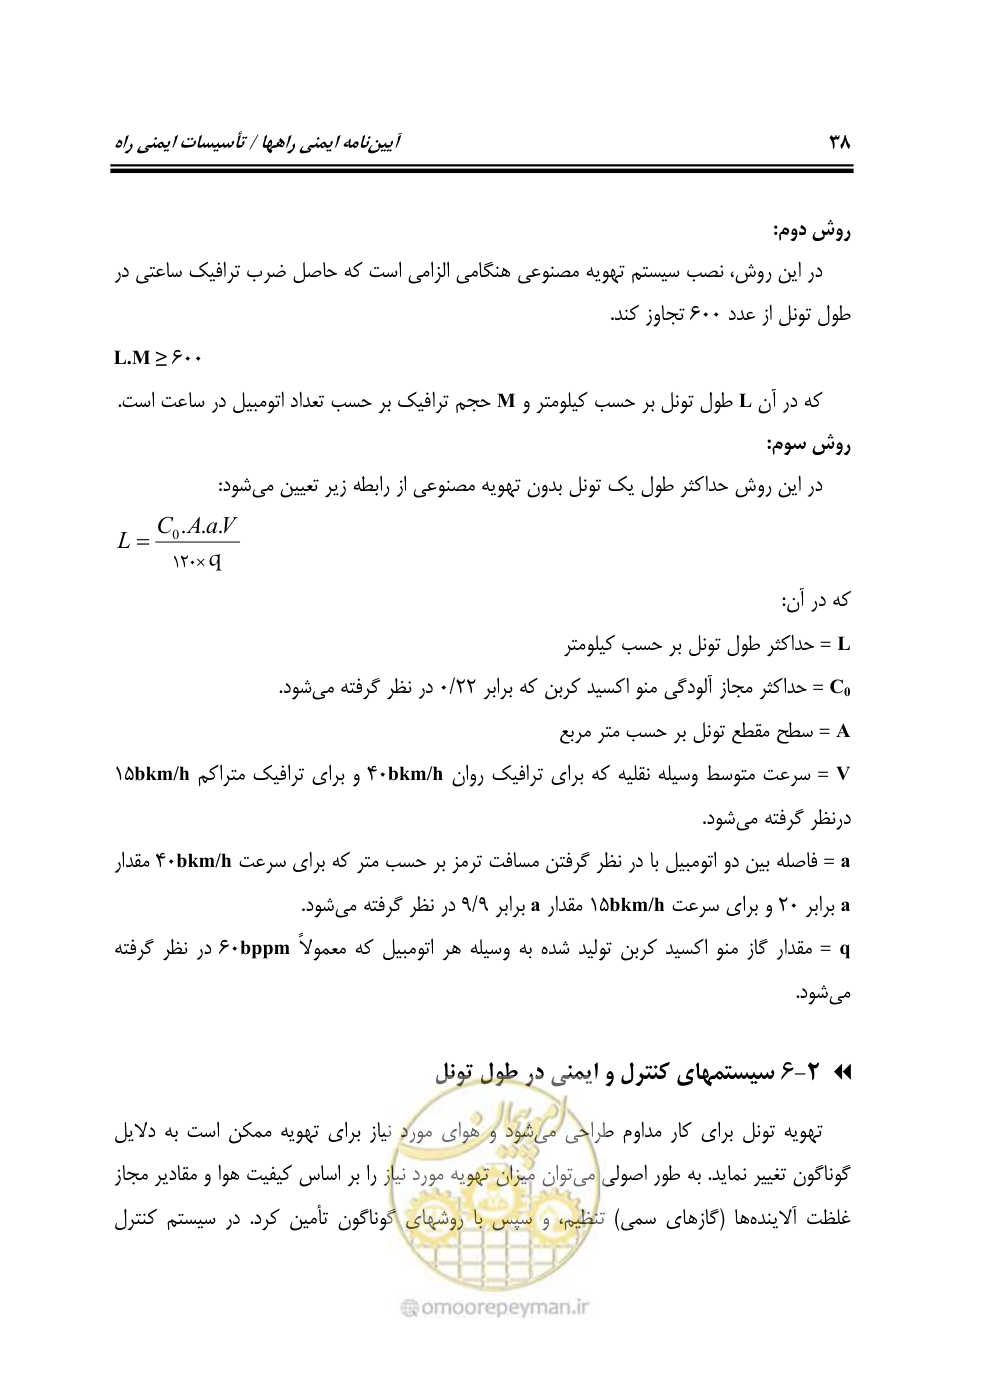 ۳۸
آیین‌نامه ایمنی راهها / تأسیسات ایمنی راه
روش دوم:
در این روش، نصب سیستم تهویه مصنوعی هنگامی الزامی است که حاصل ضرب ترافیک ساعتی در
طول تونل از عدد ۶۰۰ تجاوز کند.
L.M ≥ ۶۰۰
که در آن L طول تونل بر حسب کیلومتر و M حجم ترافیک بر حسب تعداد اتومبیل در ساعت است.
روش سوم:
در این روش حداکثر طول یک تونل بدون تهویه مصنوعی از رابطه زیر تعیین می‌شود:
L = C₀.A.a.V / ۱۲۰×q
که در آن:
L = حداکثر طول تونل بر حسب کیلومتر
C₀ = حداکثر مجاز آلودگی منو اکسید کربن که برابر ۰/۲۲ در نظر گرفته می‌شود.
A = سطح مقطع تونل بر حسب متر مربع
V = سرعت متوسط وسیله نقلیه که برای ترافیک روان ۴۰bkm/h و برای ترافیک متراکم ۱۵bkm/h
درنظر گرفته می‌شود.
a = فاصله بین دو اتومبیل با در نظر گرفتن مسافت ترمز بر حسب متر که برای سرعت ۴۰bkm/h مقدار
a برابر ۲۰ و برای سرعت ۱۵bkm/h مقدار a برابر ۹/۹ در نظر گرفته می‌شود.
q = مقدار گاز منو اکسید کربن تولید شده به وسیله هر اتومبیل که معمولاً ۶۰bppm در نظر گرفته
می‌شود.
۶-۲ سیستمهای کنترل و ایمنی در طول تونل
تهویه تونل برای کار مداوم طراحی می‌شود و هوای مورد نیاز برای تهویه ممکن است به دلایل
گوناگون تغییر نماید. به طور اصولی می‌توان میزان تهویه مورد نیاز را بر اساس کیفیت هوا و مقادیر مجاز
غلظت آلاینده‌ها (گازهای سمی) تنظیم، و سپس با روشهای گوناگون تأمین کرد. در سیستم کنترل
امورپیمان
@omoorepeyman.ir